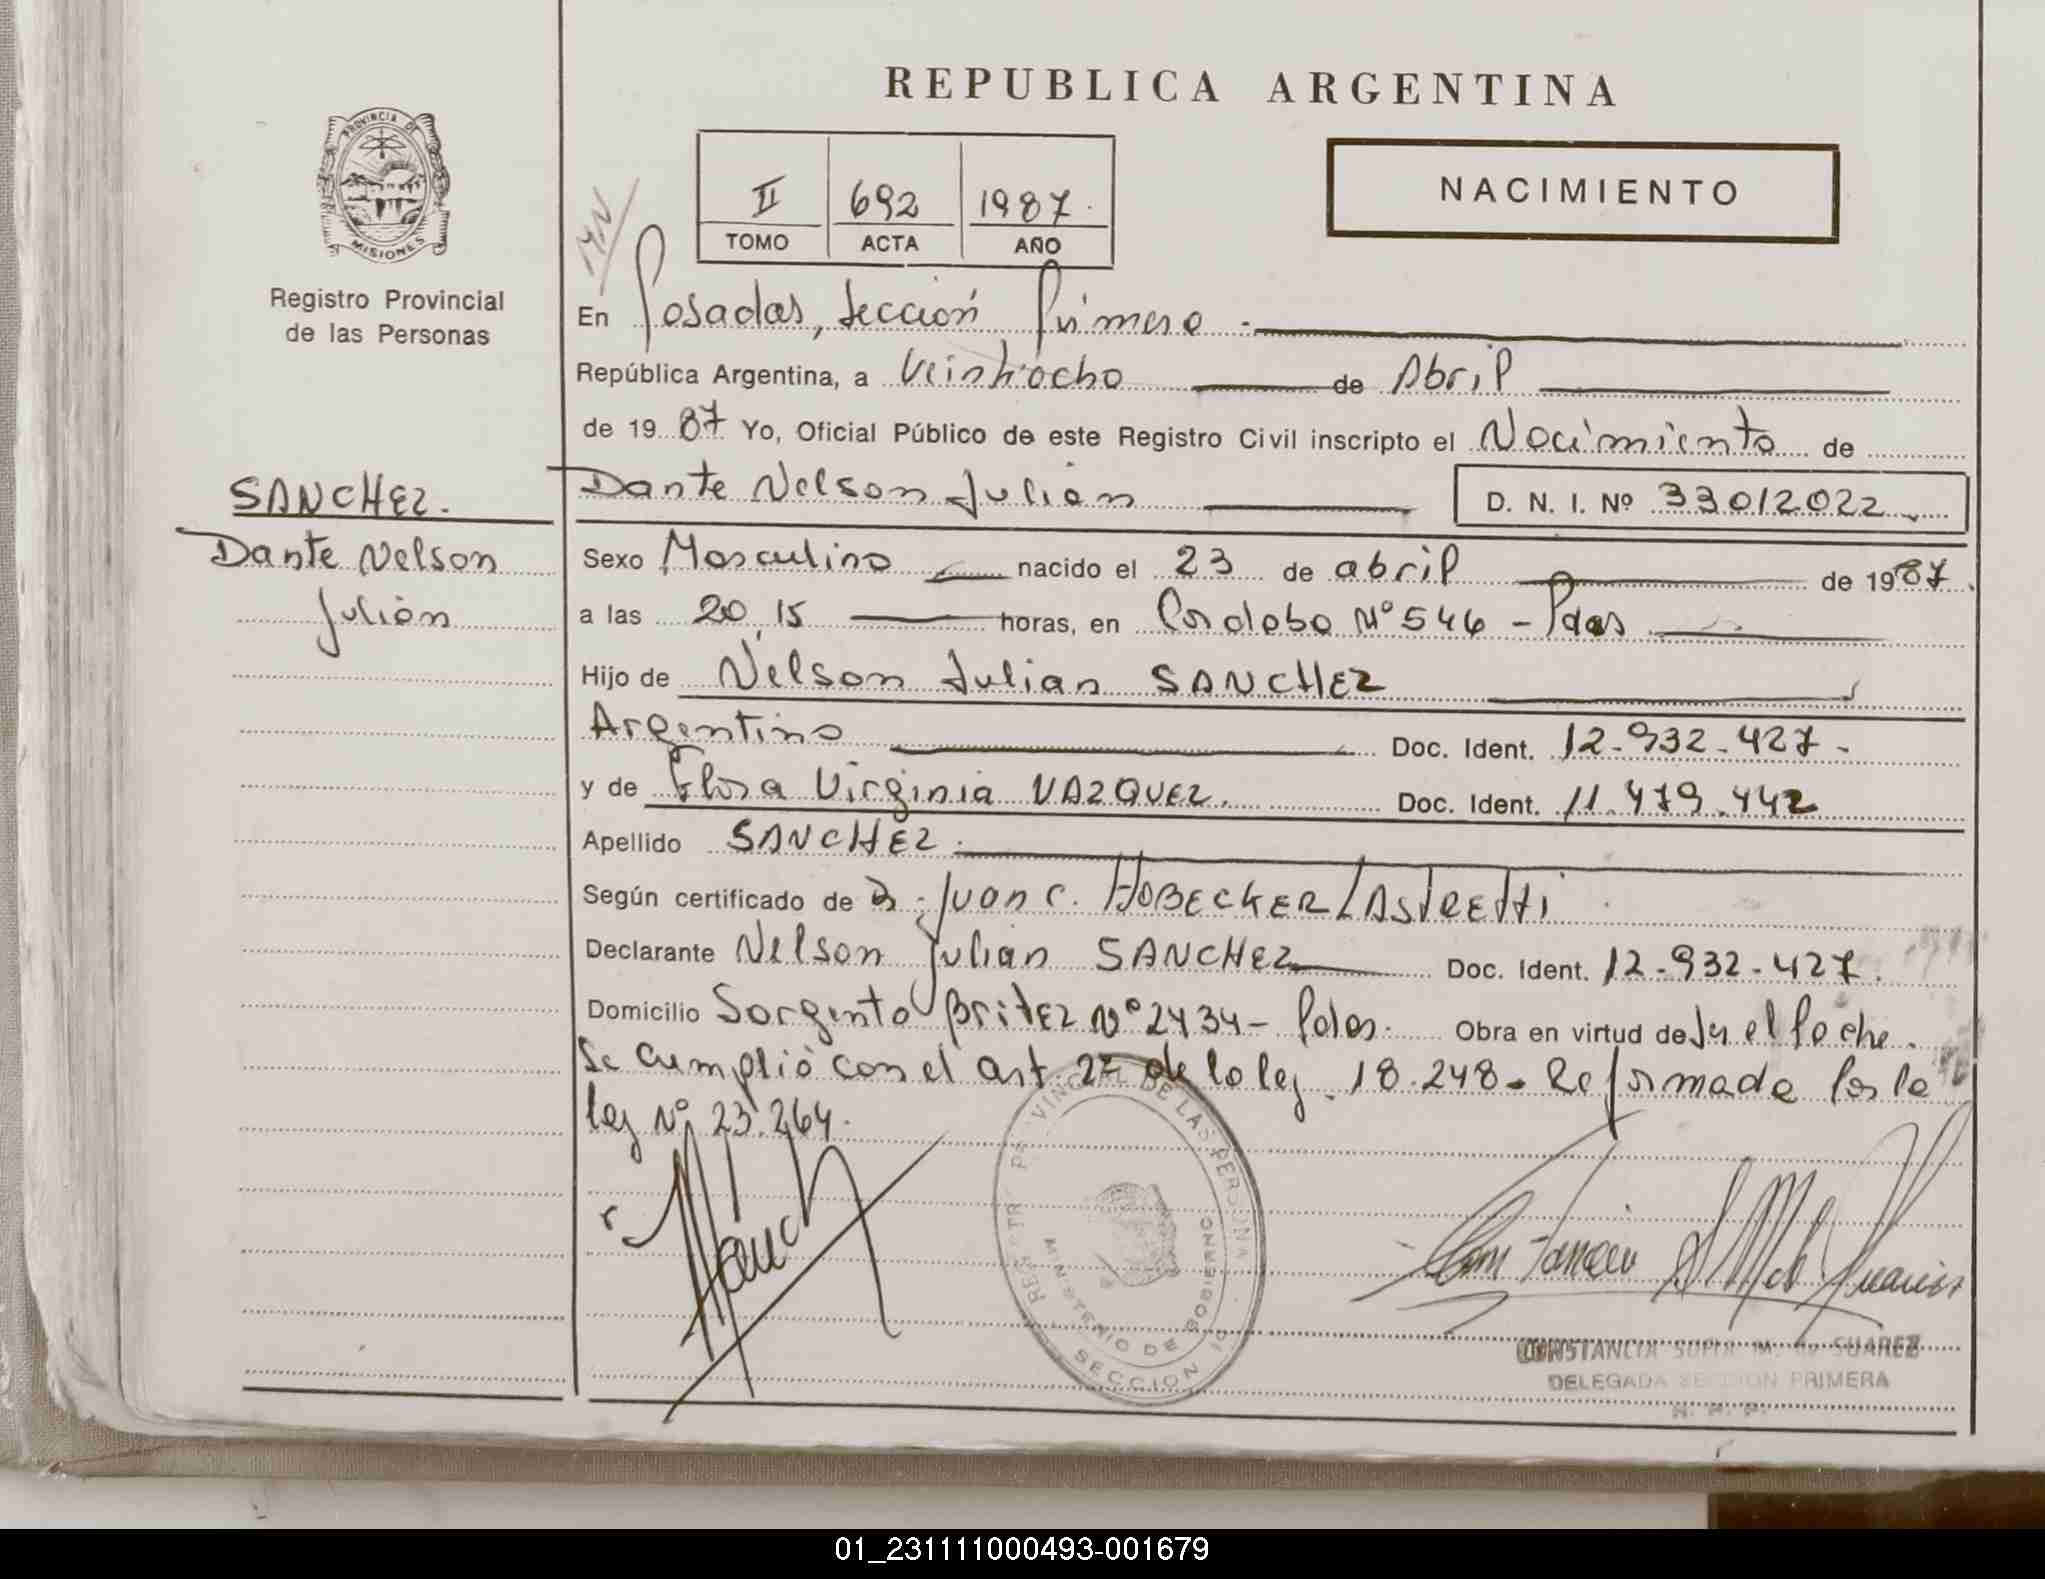 REPUBLICA ARGENTINA
PROVINCIA DE MISIONES
Registro Provincial
de las Personas
II 692 1987
TOMO ACTA AÑO
NACIMIENTO
En Posadas, Sección Primera
República Argentina, a Veintiocho de Abril
de 1987 Yo, Oficial Público de este Registro Civil inscripto el Nacimiento de
SANCHEZ.
Dante Nelson
Julián
Dante Nelson Julián D. N. I. Nº 33012022
Sexo Masculino nacido el 23 de abril de 1987.
a las 20,15 horas, en Cordoba Nº 546 - Pdas
Hijo de Nelson Julian SANCHEZ
Argentino Doc. Ident. 12.932.427.
y de Flora Virginia VAZQUEZ. Doc. Ident. 11.479.442
Apellido SANCHEZ.
Según certificado de Dr. Juan C. HOBECKER/LASTRETTI
Declarante Nelson Julián SANCHEZ Doc. Ident. 12.932.427.
Domicilio Sargento Britez Nº 2434 - Pdas. Obra en virtud de
Se cumplió con el art. 2º de la ley 18.248. Reformada por la
ley Nº 23.264.
REGISTRO PROVINCIAL DE LAS PERSONAS
MINISTERIO DE GOBIERNO
SECCION 1º
CONSTANCIA SOFIA M. de SUAREZ
DELEGADA SECCION PRIMERA
R. P. P.
01_231111000493-001679